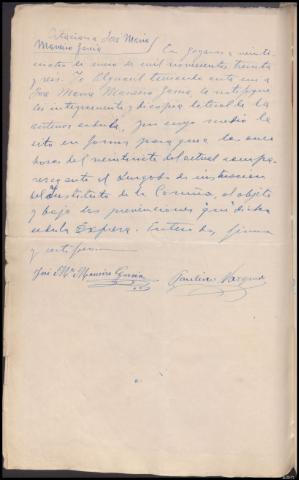 Citacion a José Maria
Maneiro Garcia
En Joyazos a veinti
cuatro de enero de mil novecientos treinta
y seis. Yo Alguacil teniendo ante mi a
José Maria Maneiro Garcia, le notifique
leí integramente y di copia literal de la
anterior cédula, por cuyo medio le
cito en forma para que a las once
horas del veintisiete del actual compa-
rezca ante el Juzgado de instruccion
del Instituto de la Coruña, al objeto
y bajo las prevenciones que dicha
cédula expresa. Enterado, firma
y certifico.
José Mª Maneiro Garcia